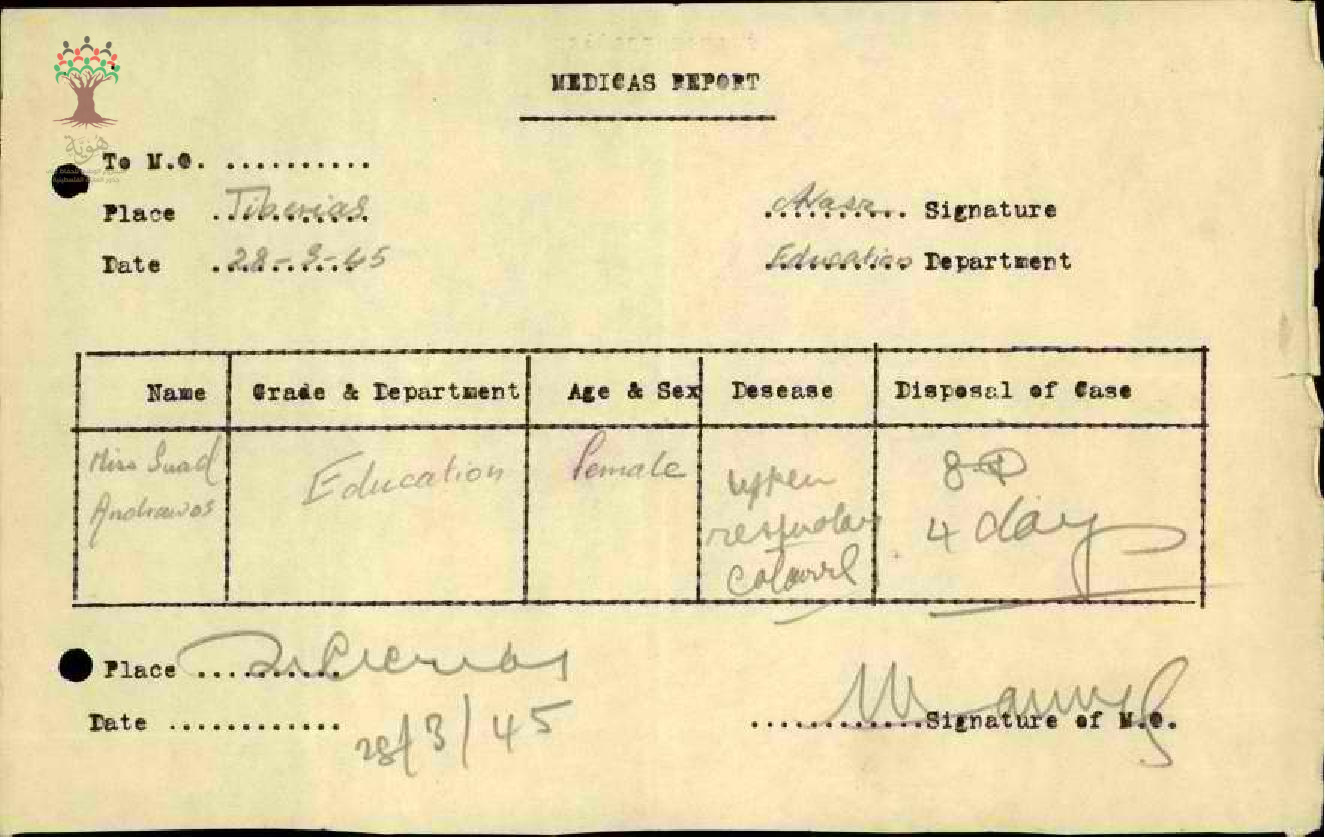 MEDICAS REPORT
هوية
To M.O. ..........
Place Tiberias
Signature
Date 28-3-45
Education Department
Name Grade & Department Age & Sex Desease Disposal of Case
Miss Suad Education Female upper 8
Andrawos respiratory 4 day
Place Tiberias
Date 28/3/45
Signature of M.O.